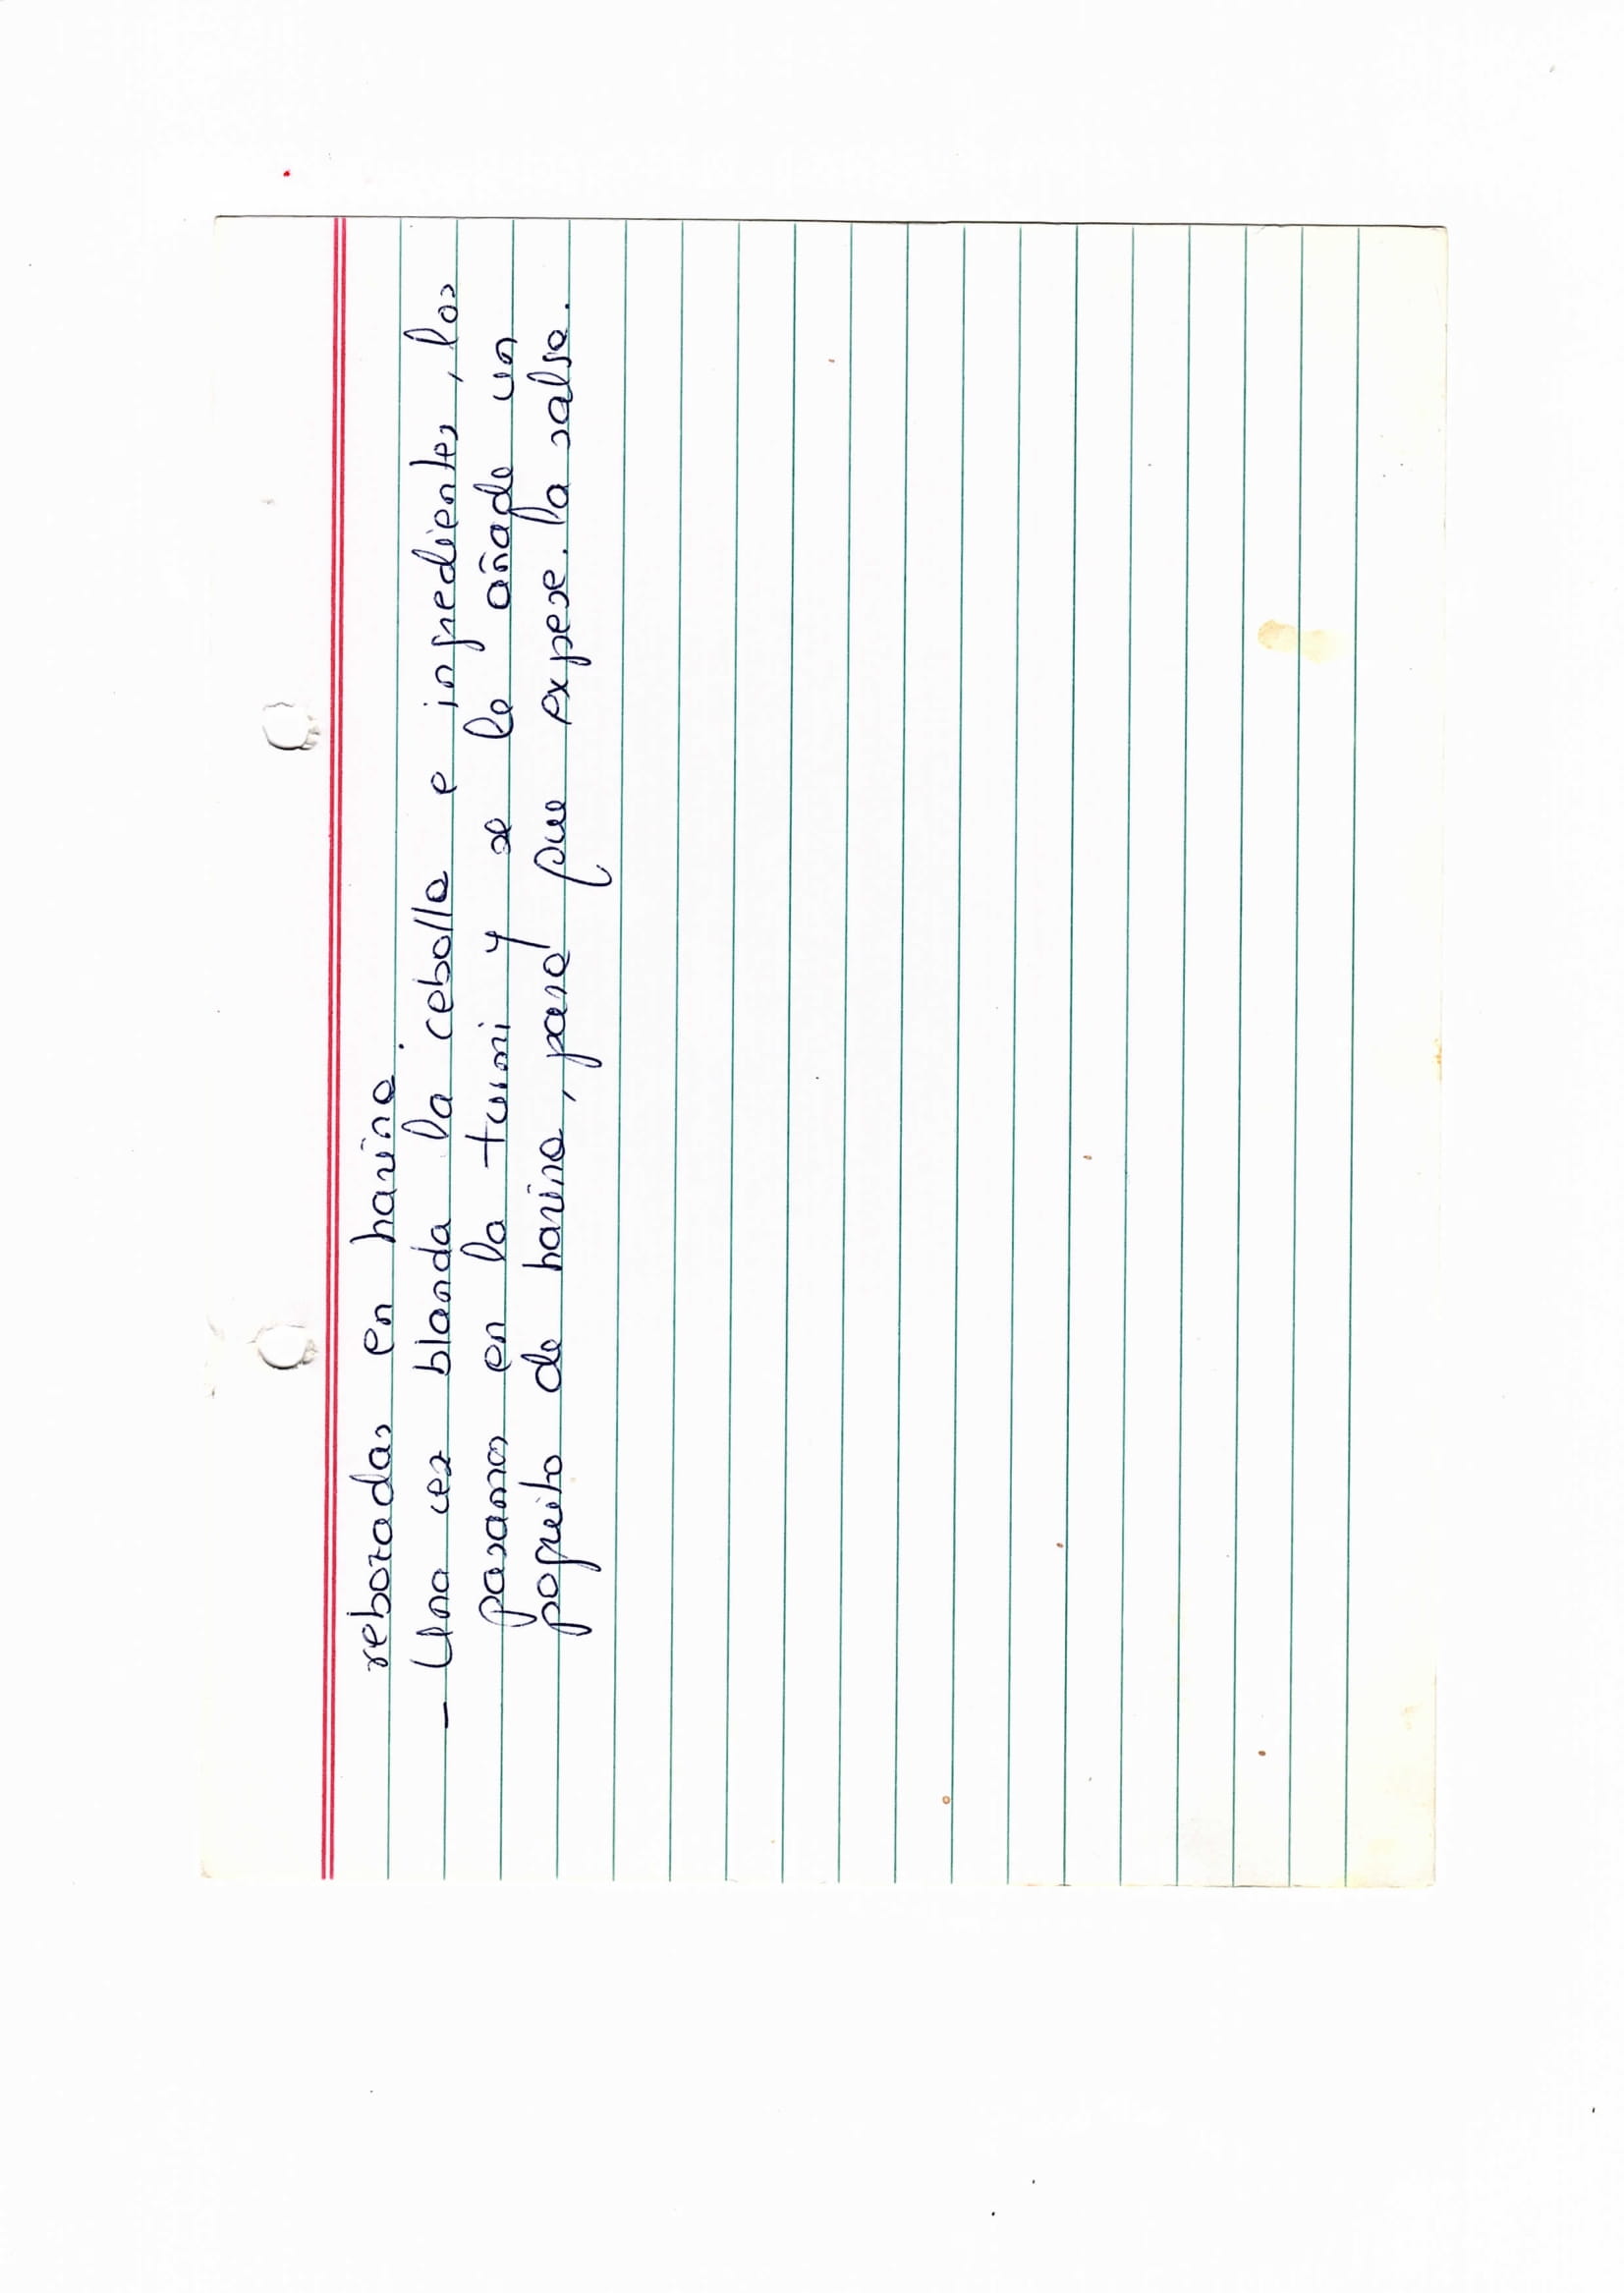 rebozadas en harina.
- Una vez blanda la cebolla e ingredientes, los
pasamos en la turmi y se le añade un
poquito de harina, para que expese. la salsa.